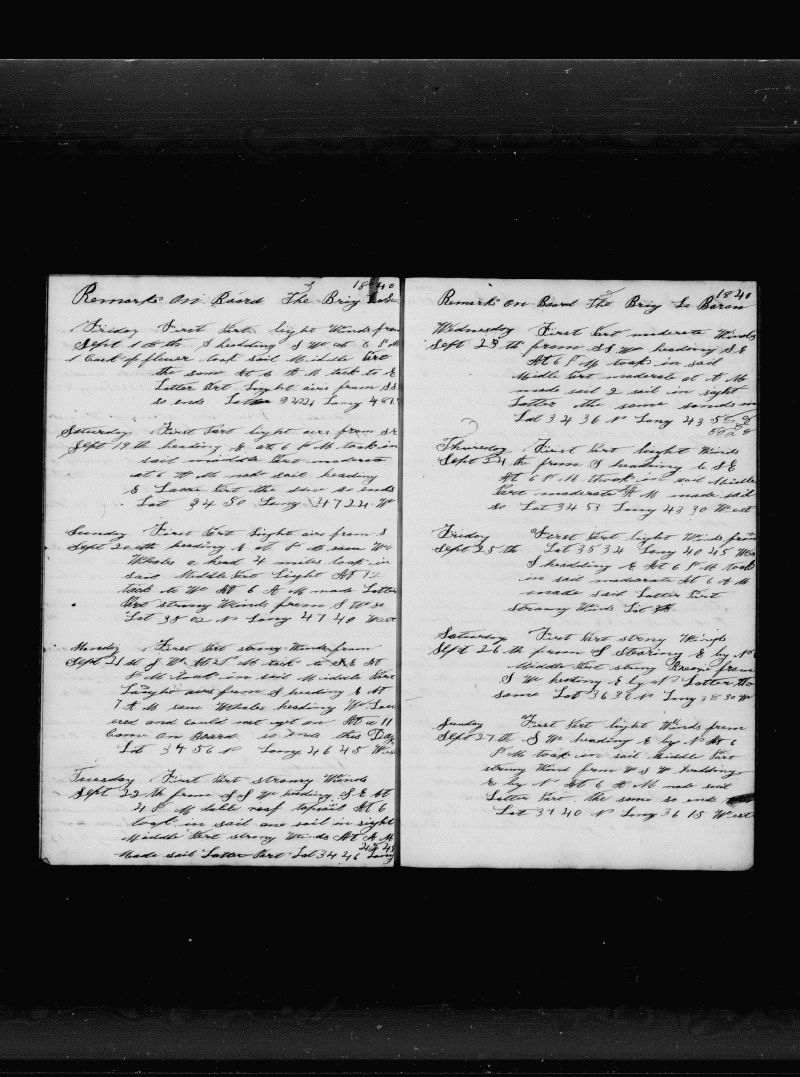 1840
Remarks On Board The Brig
Friday First Part light Winds from
Sept 18 th S heading S W at 6 P M
1 Cask of flower took sail Middle Part
the same At 6 A M tack to E
Latter Part Light airs from SS
so ends Lat 34 24 Long
Saturday First Part light airs from SE
Sept 19 th heading E at 6 P M took in
sail middle Part moderate
at 6 A M made sail heading
E Latter Part the same so ends
Lat 34 50 Long 47 24 W
Sunday First Part Light airs from S
Sept 20 th heading E at P M seen
Whales a head 4 miles took in
sail Middle Part Light At 12
tack to W At 6 A M made Latter
Part strong Winds from S W so
Lat 35 02 N Long 47 40 West
Monday First Part strong Winds from
Sept 21 th S W At P M tack to S E At
P M took in sail Middle Part
Light airs from S heading E At
7 A M saw Whales heading W Low
ered and Could not get on At 11
Came On Board so ends this Day
Lat 34 56 N Long 46 45 West
Tuesday First Part strong Winds
Sept 22 th from S S W heading S E At
4 P M doble reef topsail At 6
took in sail one sail in sight
Middle Part strong Winds At A M
Made sail Latter Part Lat 34 46 Long
1840
Remarks On Board The Brig Le Baron
Wednesday First Part moderate Winds
Sept 23 th from S S W heading S E
At 6 P M took in sail
Midle Part moderate at A M
made sail 2 sail in sight
Latter the same so ends
Lat 34 36 N Long 43 56
Thursday First Part light Winds
Sept 24 th from S heading E S E
At 6 P M took in sail Middle
Part moderate A M made sail
so Lat 34 53 Long 43 30 West
Friday First Part light Winds from
Sept 25 th Lat 35 34 Long 40 45 West
S heading E At 6 P M took
in sail moderate At 6 A M
made sail Latter Part
strong Winds Lat
Saturday First Part strong Winds
Sept 26 th from S Staring E by N
Middle Part strong Breeze from
S W heding E by N Latter the
same Lat 36 36 N Long 38 30 W
Sunday First Part light Winds from
Sept 27 th S W heading E by N At 6
P M took in sail Middle Part
strong Wind from W S W heading
E by N At 6 A M made sail
Latter Part the same so ends
Lat 37 40 N Long 36 15 West